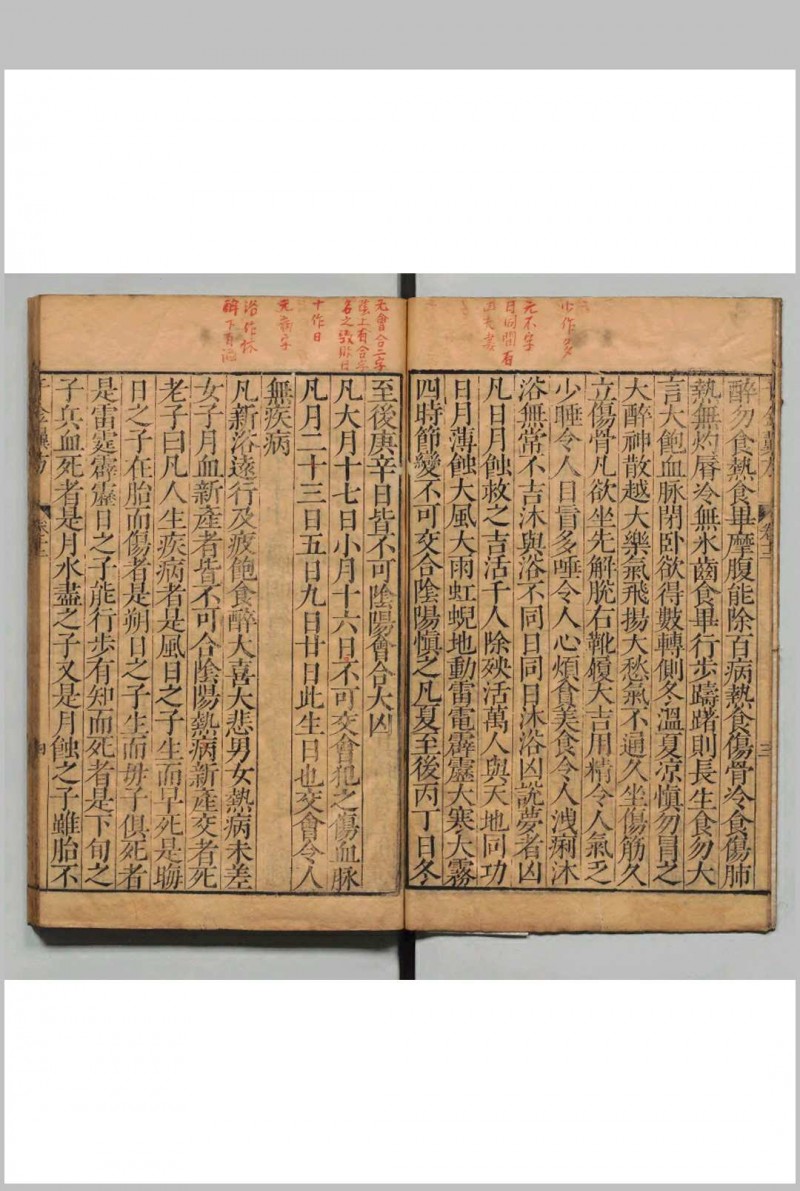 千金翼方 卷十二 三
醉勿食熱食畢摩腹能除百病熱食傷骨冷食傷肺
熱無灼脣冷無氷齒食畢行步躊躇則長生食勿大
言大飽血脉閉卧欲得數轉側冬溫夏凉慎勿冒之
大醉神散越大樂氣飛揚大愁氣不通久坐傷筋久
立傷骨凡欲坐先解脫右靴履大吉用精令人氣乏
少睡令人目盲多唾令人心煩食美食令人洩痢沐
浴無常不吉沐與浴不同日同日沐浴凶說夢者凶
凡日月蝕救之吉活千人除殃活萬人與天地同功
日月薄蝕大風大雨虹蜺地動雷電霹靂大寒大霧
四時節變不可交合陰陽慎之凡夏至後丙丁日冬
至後庚辛日皆不可陰陽會合大凶
凡大月十七日小月十六日不可交會犯之傷血脉
凡月二十三日五日九日廿日此生日也交會令人
無疾病
凡新浴遠行及疲飽食醉大喜大悲男女熱病未差
女子月血新產者皆不可合陰陽熱病新產交者死
老子曰凡人生疾病者是風日之子生而早死是晦
日之子在胎而傷者是朔日之子生而母子俱死者
是雷霆霹靂日之子能行步有知而死者是下旬之
子兵血死者是月水盡之子又是月蝕之子雖胎不
千金翼方 卷十二 四
少作多
元不字
日同間有
元會合二字
陰上有合字
十作日
无病字
浴作沐